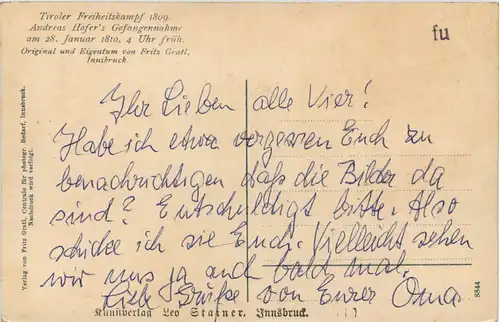 Tiroler Freiheitskampf 1809.
Andreas Hofer's Gefangennahme
am 28. Januar 1810, 4 Uhr früh.
Original und Eigentum von Fritz Gratl,
Innsbruck.
fu
Ihr Lieben alle Vier!
Habe ich etwa vergessen Euch zu
benachrichtigen daß die Bilder da
sind? Entschuldigt bitte. Also
schicke ich sie Euch. Vielleicht sehen
wir uns ja auch bald mal.
Liebe Grüße von Eurer Oma
Verlag von Fritz Gratl, Centrale für photogr. Bedarf, Innsbruck.
Nachdruck wird verfolgt.
8844
Kunstverlag Leo Stainer, Innsbruck.